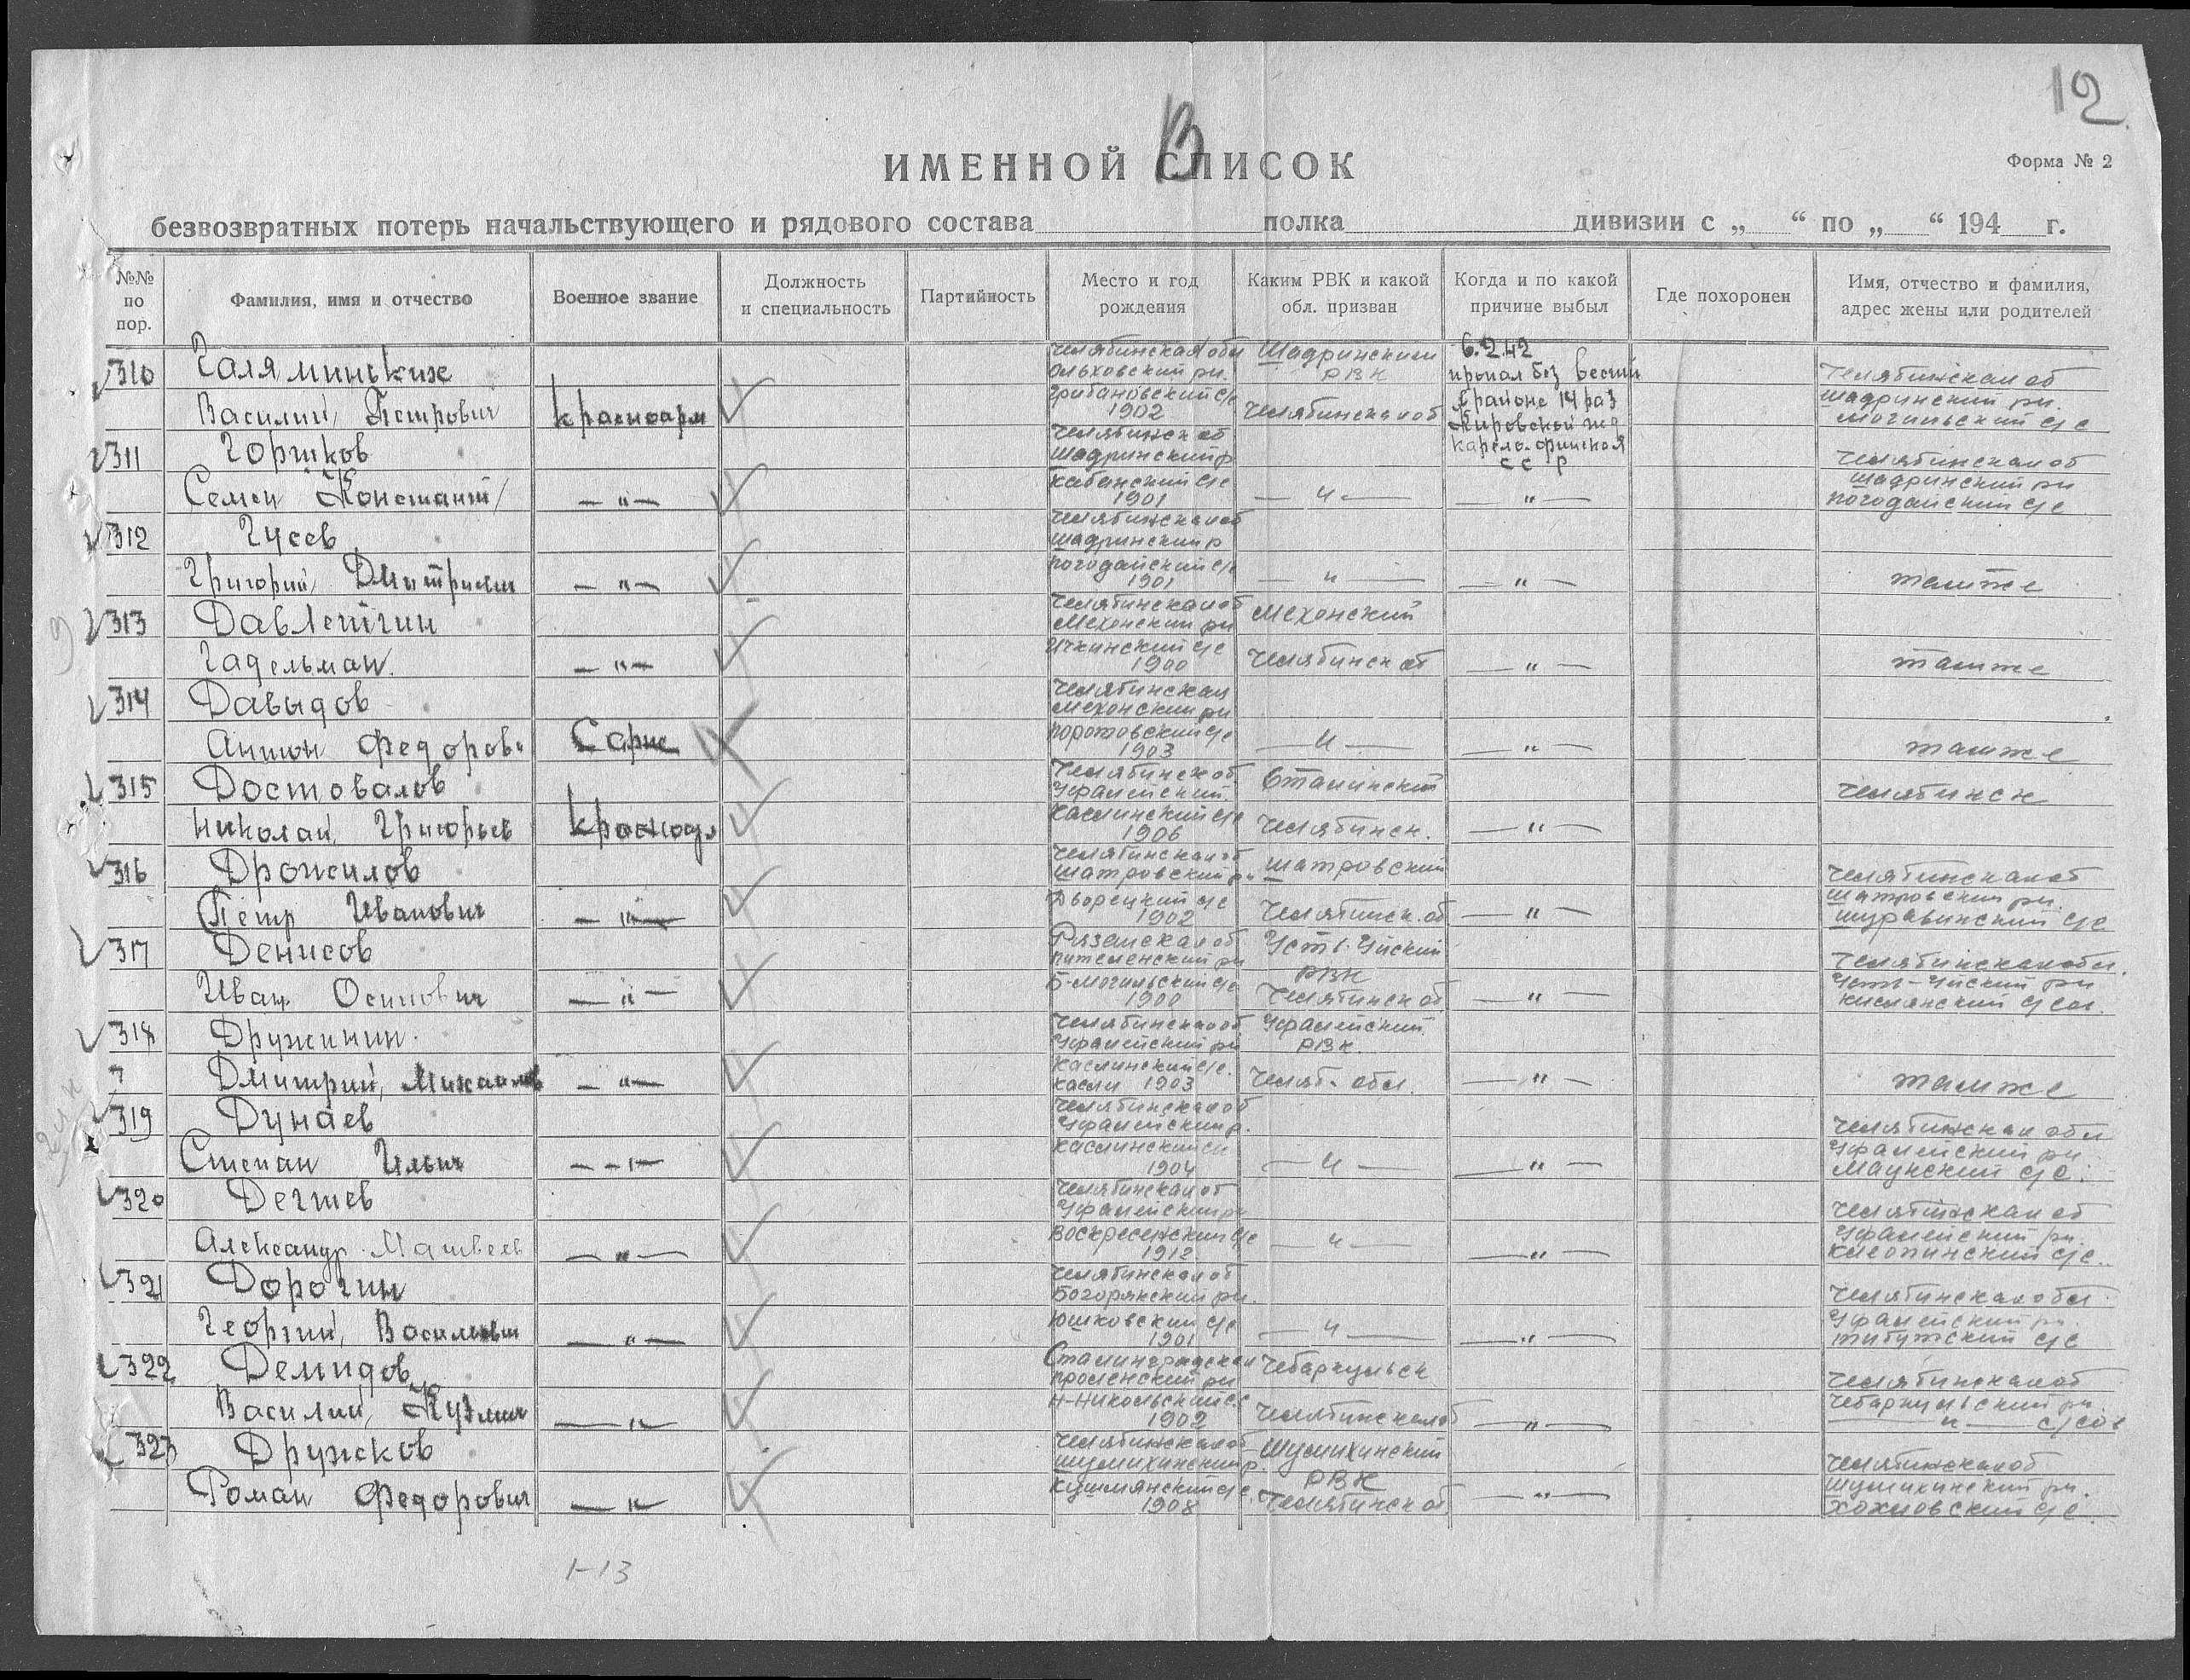 12
В
ИМЕННОЙ СПИСОК
Форма № 2
безвозвратных потерь начальствующего и рядового состава полка дивизии с „ “ по „ “ 194 г.
№№ по пор.
Фамилия, имя и отчество
Военное звание
Должность и специальность
Партийность
Место и год рождения
Каким РВК и какой обл. призван
Когда и по какой причине выбыл
Где похоронен
Имя, отчество и фамилия, адрес жены или родителей
310 Галяминьких
Василий Петрович
Красноарм
Челябинская обл
Ольховский рн.
Грибановский с/с
1902
Шадринским
РВК
Челябинская об
6.2.42
пропал без вести
в районе 14 раз
Кировской жд
Карело-финская
ССР
Челябинская об
Шадринский рн.
Могильский с/с
311 Горшков
Семен Констант/
— " —
Челябинск об
Шадринский р
Кабанский с/с
1901
— " —
— " —
Челябинская об
Шадринский рн
Погодайский с/с
312 Гусев
Григорий Дмитриевич
— " —
Челябинская об
Шадринский р
Погодайский с/с
1901
— " —
— " —
там же
313 Давлетгин
Гадельман
— " —
Челябинская об
Мехонский рн
Ичкинский с/с
1900
Мехонский
Челябинск об
— " —
там же
314 Давыдов
Антон Федоров.
Серж
Челябинская
Мехонский рн
1903
— " —
— " —
там же
315 Достовалов
Николай Григорьев
Красноар
Челябинск об
Уфалейский
Каслинский с/с
1906
Сталинский
Челябинск.
— " —
Челябинск
316 Дрожилов
Петр Иванович
— " —
Челябинская об
Шатровский рн
Дворецкий с/с
1902
Шатровский
Челябинск. об
— " —
Челябинская об
Шатровский рн.
317 Денисов
Иван Осипович
— " —
Рязанская об
Б-Могильский с/с
1900
Усть-Уйский
РВК
Челябинск об
— " —
Челябинская обл.
Усть-Уйский рн
Кислянский с/сов.
318 Дружинин.
Дмитрий, Михайлов
— " —
Челябинская об
Уфалейский рн
Каслинский с/с.
Касли 1903
Уфалейский
РВК.
Челяб. обл.
— " —
там же
319 Дунаев
Степан Ильич
— " —
Челябинская об
Уфалейский р.
1904
— " —
— " —
Челябинская обл
Уфалейский рн
Маукский с/с.
320 Дегтев
Александр Матвеев
— " —
Челябинская об
Уфалейский рн
Воскресенский с/с
1912.
— " —
— " —
Челябинская об
Уфалейский рн.
321 Дорогин
Георгий, Васильевич
— " —
Челябинская об
Багарякский рн.
Юшковский с/с
1901
— " —
— " —
Челябинская обл
Уфалейский рн.
322 Демидов
Василий Кузмич
— " —
Сталинградская
Н-Никольский с/с
1902
Чебаркульск
Челябинская об
— " —
Челябинская об
Чебаркульский рн.
— " — с/сов
323 Дружков
Роман Федорович
— " —
Челябинская об
Шумихинский р.
Кушмянский с/с
1908
Шумихинский
РВК
Челябинск об
— " —
Челябинская об
Шумихинский рн.
Хохловский с/с.
1-13